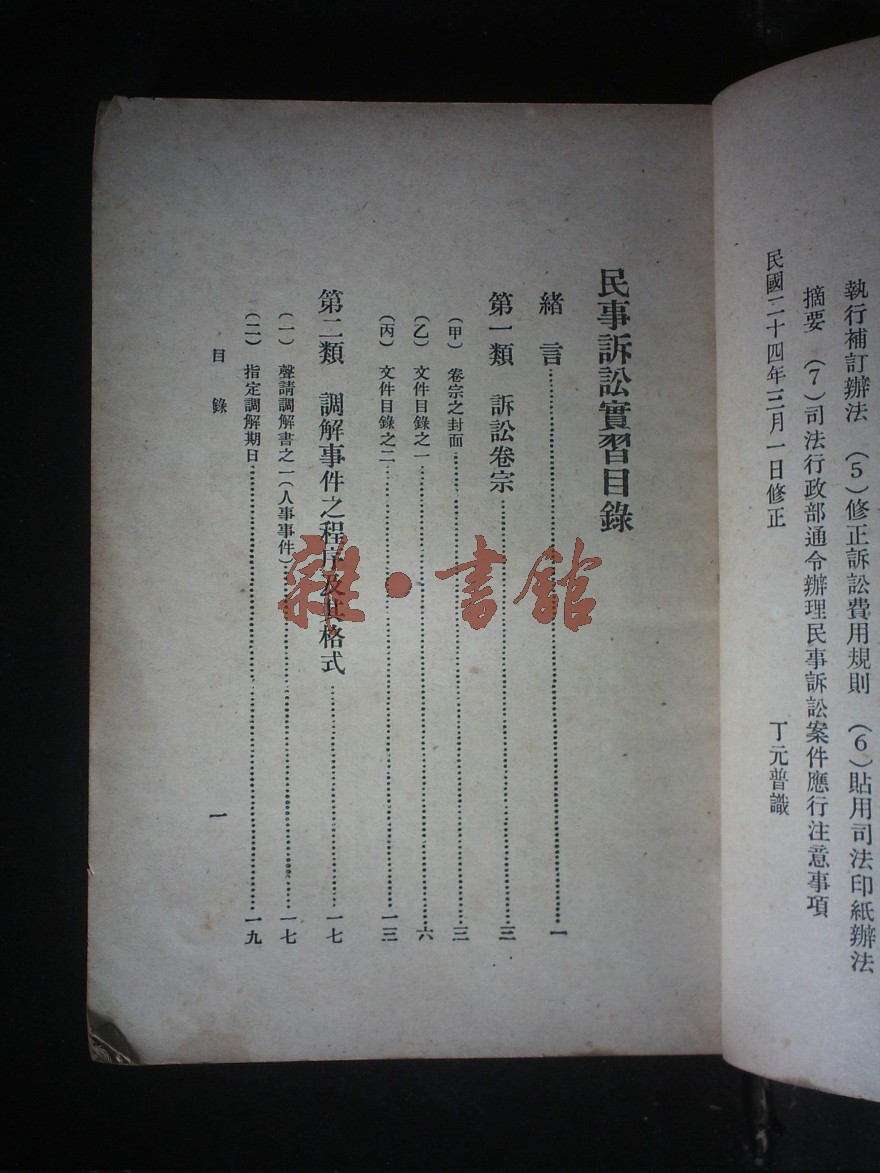 執行補訂辦法 (5)修正訴訟費用規則 (6)貼用司法印紙辦法
摘要 (7)司法行政部通令辦理民事訴訟案件應行注意事項
民國二十四年三月一日修正 丁元普識
民事訴訟實習目錄
緒言……一
第一類 訴訟卷宗……三
(甲) 卷宗之封面……三
(乙) 文件目錄之一……六
(丙) 文件目錄之二……一三
第二類 調解事件之程序及其格式……一七
(一) 聲請調解書之一(人事事件)……一七
(二) 指定調解期日……一九
目錄 一
雜·書館